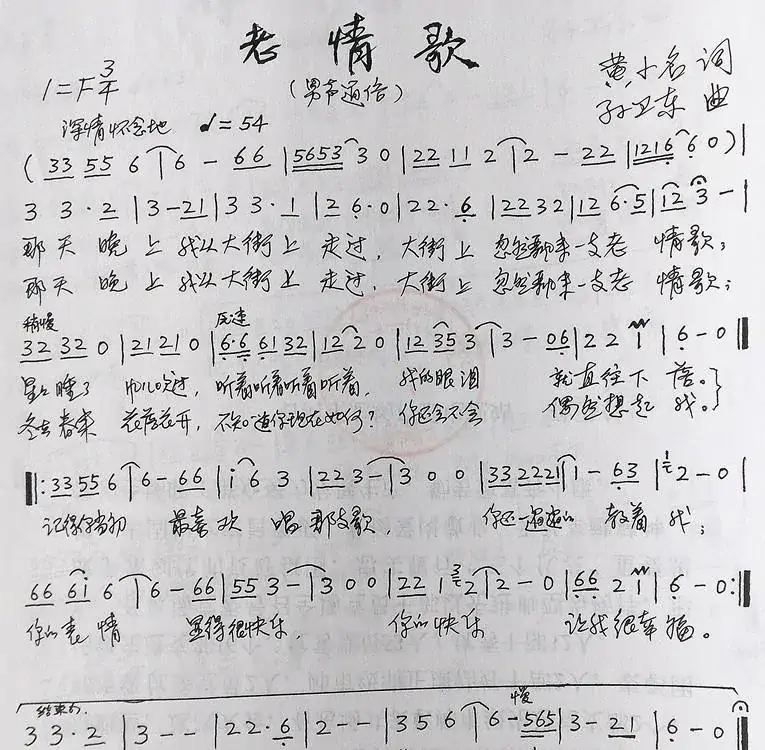 老情歌
(男声通俗)
1=F 3/4
黄小名 词
孙卫东 曲
深情怀念地 ♩=54
(33 55 6 | 6 - 66 | 5653 3 0 | 22 11 2 | 2 - 22 | 1216 6 0) |
3 3·2 | 3 - 21 | 3 3·1 | 2 6·0 | 22·6 | 22 32 | 12 6·5 | 12 3 - |
那天 晚上 我从大街上 走过, 大街上 忽然飘来一支老 情歌;
那天 晚上 我从大街上 走过, 大街上 忽然飘来一支老 情歌;
稍慢 原速
32 32 0 | 21 21 0 | 6·6 61 32 | 12 2 0 | 12 35 3 | 3 - 06 | 2 2 1 | 6 - 0
星星睡了 听着听着听着听着, 我的眼泪 就直往下 落。
冬去春来 花落花开, 不知道你现在如何? 你还会不会 偶然想起 我。
|: 33 55 6 | 6 - 66 | i 6 3 | 22 3 - | 3 0 0 | 33 2221 | 1 - 63 | 2 - 0 |
记得你当初 最喜欢 唱那支歌, 你还一遍遍的 教着我;
66 6i 6 | 6 - 66 | 55 3 - | 3 0 0 | 22 1 2 | 2 - 0 | 66 2 1 | 6 - 0 :|
你的表情 显得很快乐 你的快乐 让我很幸福。
结束句 慢
3 3·2 | 3 - - | 22·6 | 2 - - | 3 5 6 | 6 - 565 | 3 - 21 | 6 - 0